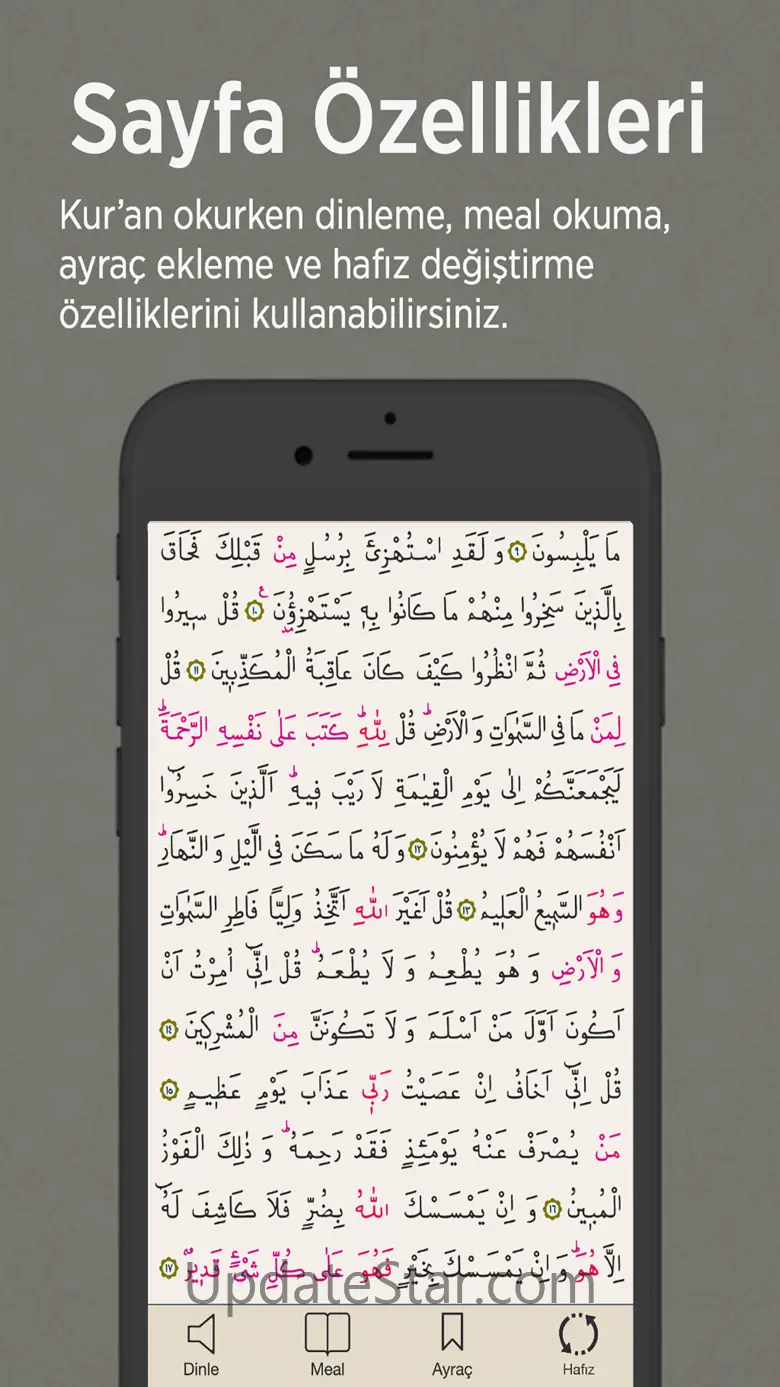 Sayfa Özellikleri
Kur’an okurken dinleme, meal okuma,
ayraç ekleme ve hafız değiştirme
özelliklerini kullanabilirsiniz.
مَا يَلْبِسُونَ ﴿٩﴾ وَ لَقَدِ اسْتُهْزِئَ بِرُسُلٍ مِنْ قَبْلِكَ فَحَاقَ
بِالَّذ۪ينَ سَخِرُوا مِنْهُمْ مَا كَانُوا بِه۪ يَسْتَهْزِؤُنَ ﴿١٠﴾ قُلْ س۪يرُوا
فِي الْاَرْضِ ثُمَّ انْظُرُوا كَيْفَ كَانَ عَاقِبَةُ الْمُكَذِّب۪ينَ ﴿١١﴾ قُلْ
لِمَنْ مَا فِي السَّمٰوَاتِ وَ الْاَرْضِۜ قُلْ لِلّٰهِۜ كَتَبَ عَلٰى نَفْسِهِ الرَّحْمَةَۜ
لَيَجْمَعَنَّكُمْ اِلٰى يَوْمِ الْقِيٰمَةِ لَا رَيْبَ ف۪يهِۜ اَلَّذ۪ينَ خَسِرُٓوا
اَنْفُسَهُمْ فَهُمْ لَا يُؤْمِنُونَ ﴿١٢﴾ وَ لَهُ مَا سَكَنَ فِي الَّيْلِ وَ النَّهَارِۜ
وَ هُوَ السَّم۪يعُ الْعَل۪يمُ ﴿١٣﴾ قُلْ اَغَيْرَ اللّٰهِ اَتَّخِذُ وَلِيًّا فَاطِرِ السَّمٰوَاتِ
وَ الْاَرْضِ وَ هُوَ يُطْعِمُ وَ لَا يُطْعَمُۜ قُلْ اِنّ۪ٓي اُمِرْتُ اَنْ
اَكُونَ اَوَّلَ مَنْ اَسْلَمَ وَ لَا تَكُونَنَّ مِنَ الْمُشْرِك۪ينَ ﴿١٤﴾
قُلْ اِنّ۪ٓي اَخَافُ اِنْ عَصَيْتُ رَبّ۪ي عَذَابَ يَوْمٍ عَظ۪يمٍ ﴿١٥﴾
مَنْ يُصْرَفْ عَنْهُ يَوْمَئِذٍ فَقَدْ رَحِمَهُۜ وَ ذٰلِكَ الْفَوْزُ
الْمُب۪ينُ ﴿١٦﴾ وَ اِنْ يَمْسَسْكَ اللّٰهُ بِضُرٍّ فَلَا كَاشِفَ لَهُٓ
اِلَّا هُوَۜ وَ اِنْ يَمْسَسْكَ بِخَيْرٍ فَهُوَ عَلٰى كُلِّ شَيْءٍ قَد۪يرٌ ﴿١٧﴾
UpdateStar.com
Dinle Meal Ayraç Hafız